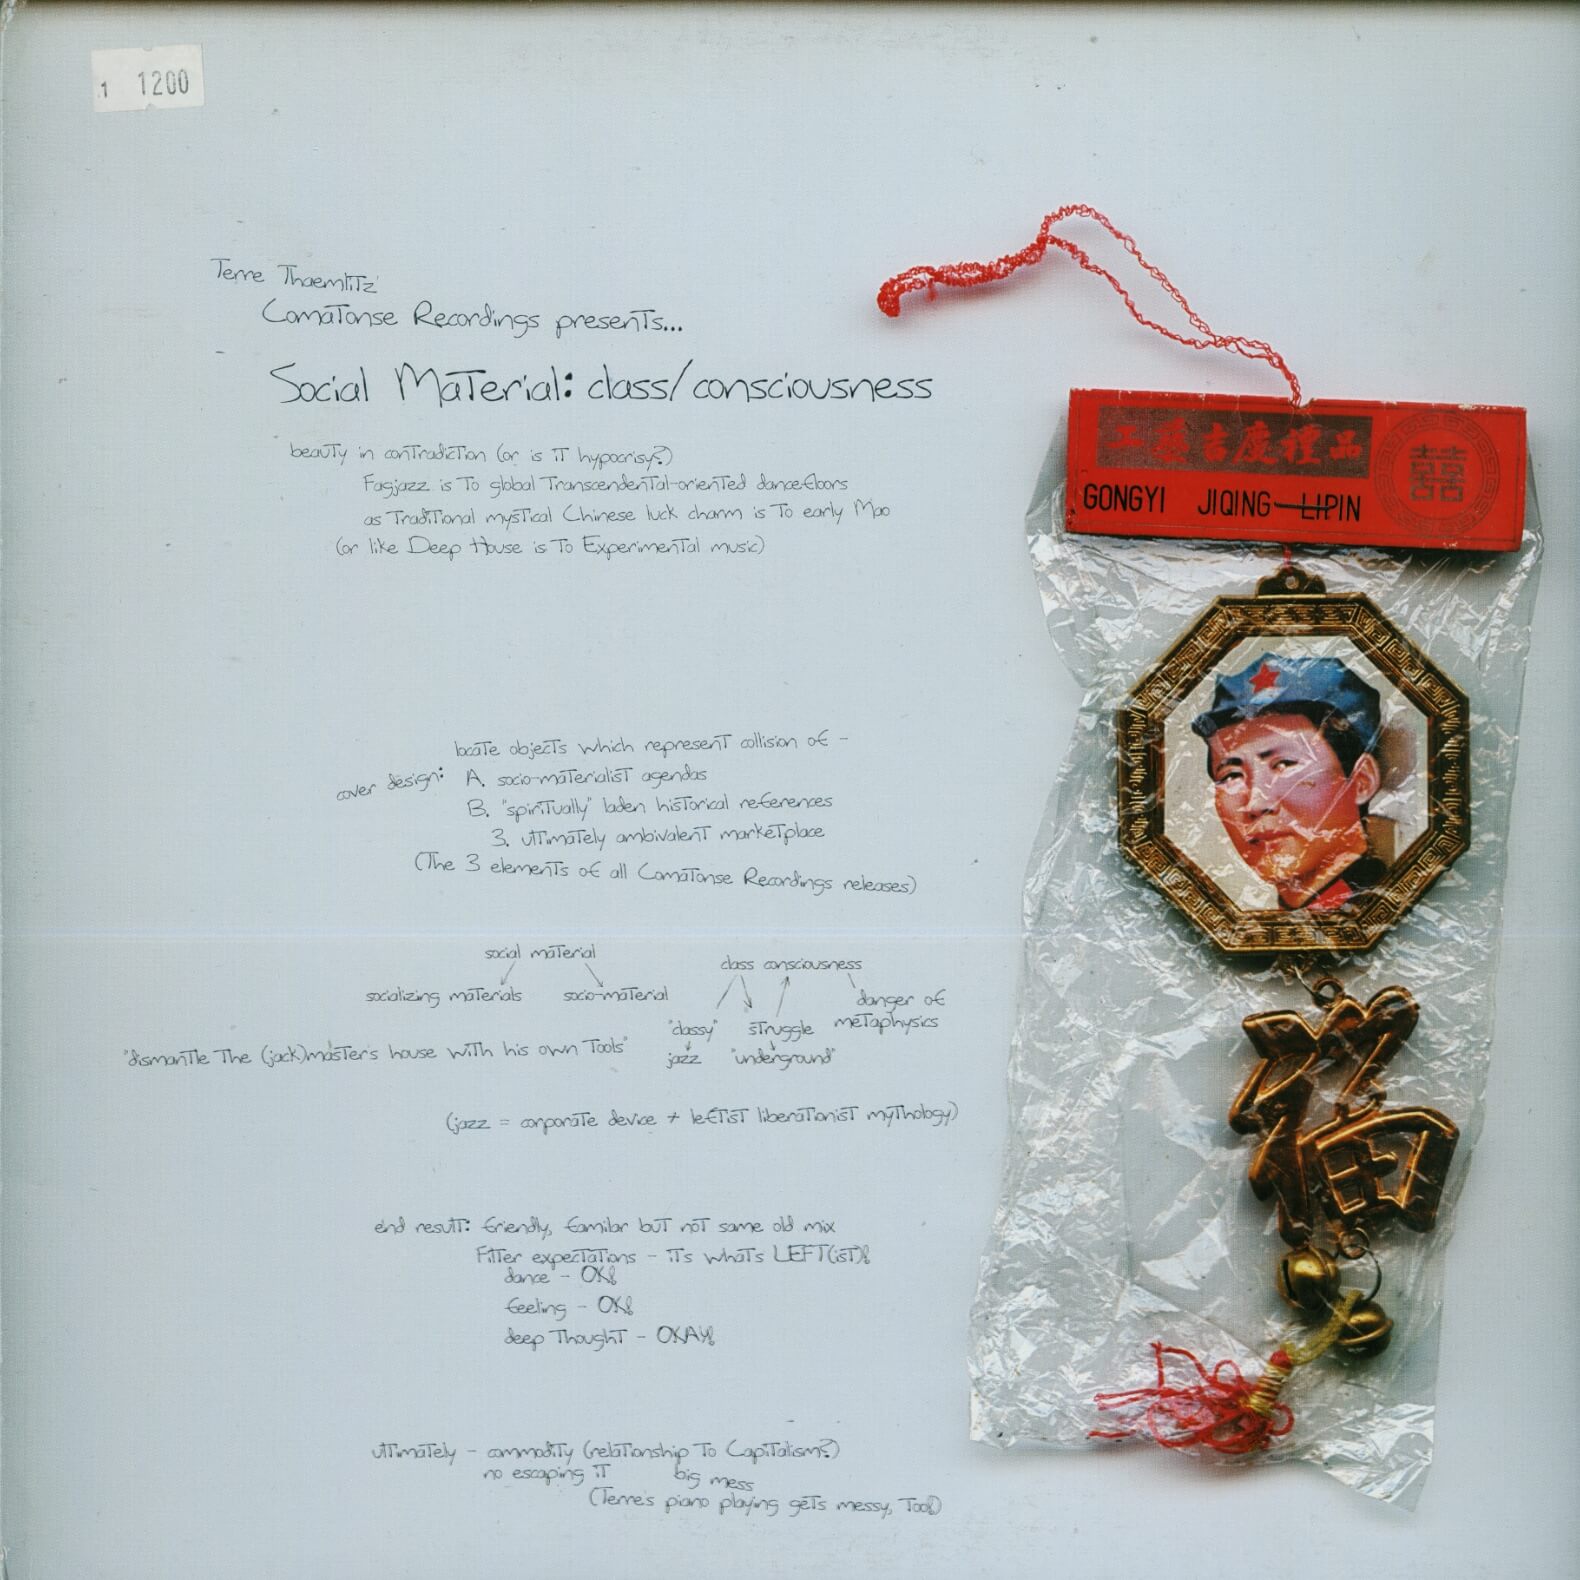 1 1200
Terre Thaemlitz
Comatonse Recordings presents...
Social Material: class/consciousness
beauty in contradiction (or is it hypocrisy?)
Fagjazz is to global transcendental-oriented dancefloors
as traditional mystical Chinese luck charm is to early Mao
(or like Deep House is to Experimental music)
工艺吉慶禮品
囍
GONGYI JIQING LIPIN
locate objects which represent collision of -
cover design: A. socio-materialist agendas
B. "spiritually" laden historical references
3. ultimately ambivalent marketplace
(The 3 elements of all Comatonse Recordings releases)
social material
class consciousness
socializing materials socio-material
danger of
metaphysics
"classy" struggle
jazz "underground"
"dismantle the (jack)master's house with his own tools"
(jazz = corporate device + leftist liberationist mythology)
福
end result: friendly, familar but not same old mix
Filter expectations - it's what's LEFT(ist)!
dance - OK!
feeling - OK!
deep thought - OKAY!
ultimately - commodity (relationship to Capitalism?)
no escaping it big mess
(Terre's piano playing gets messy, too!)